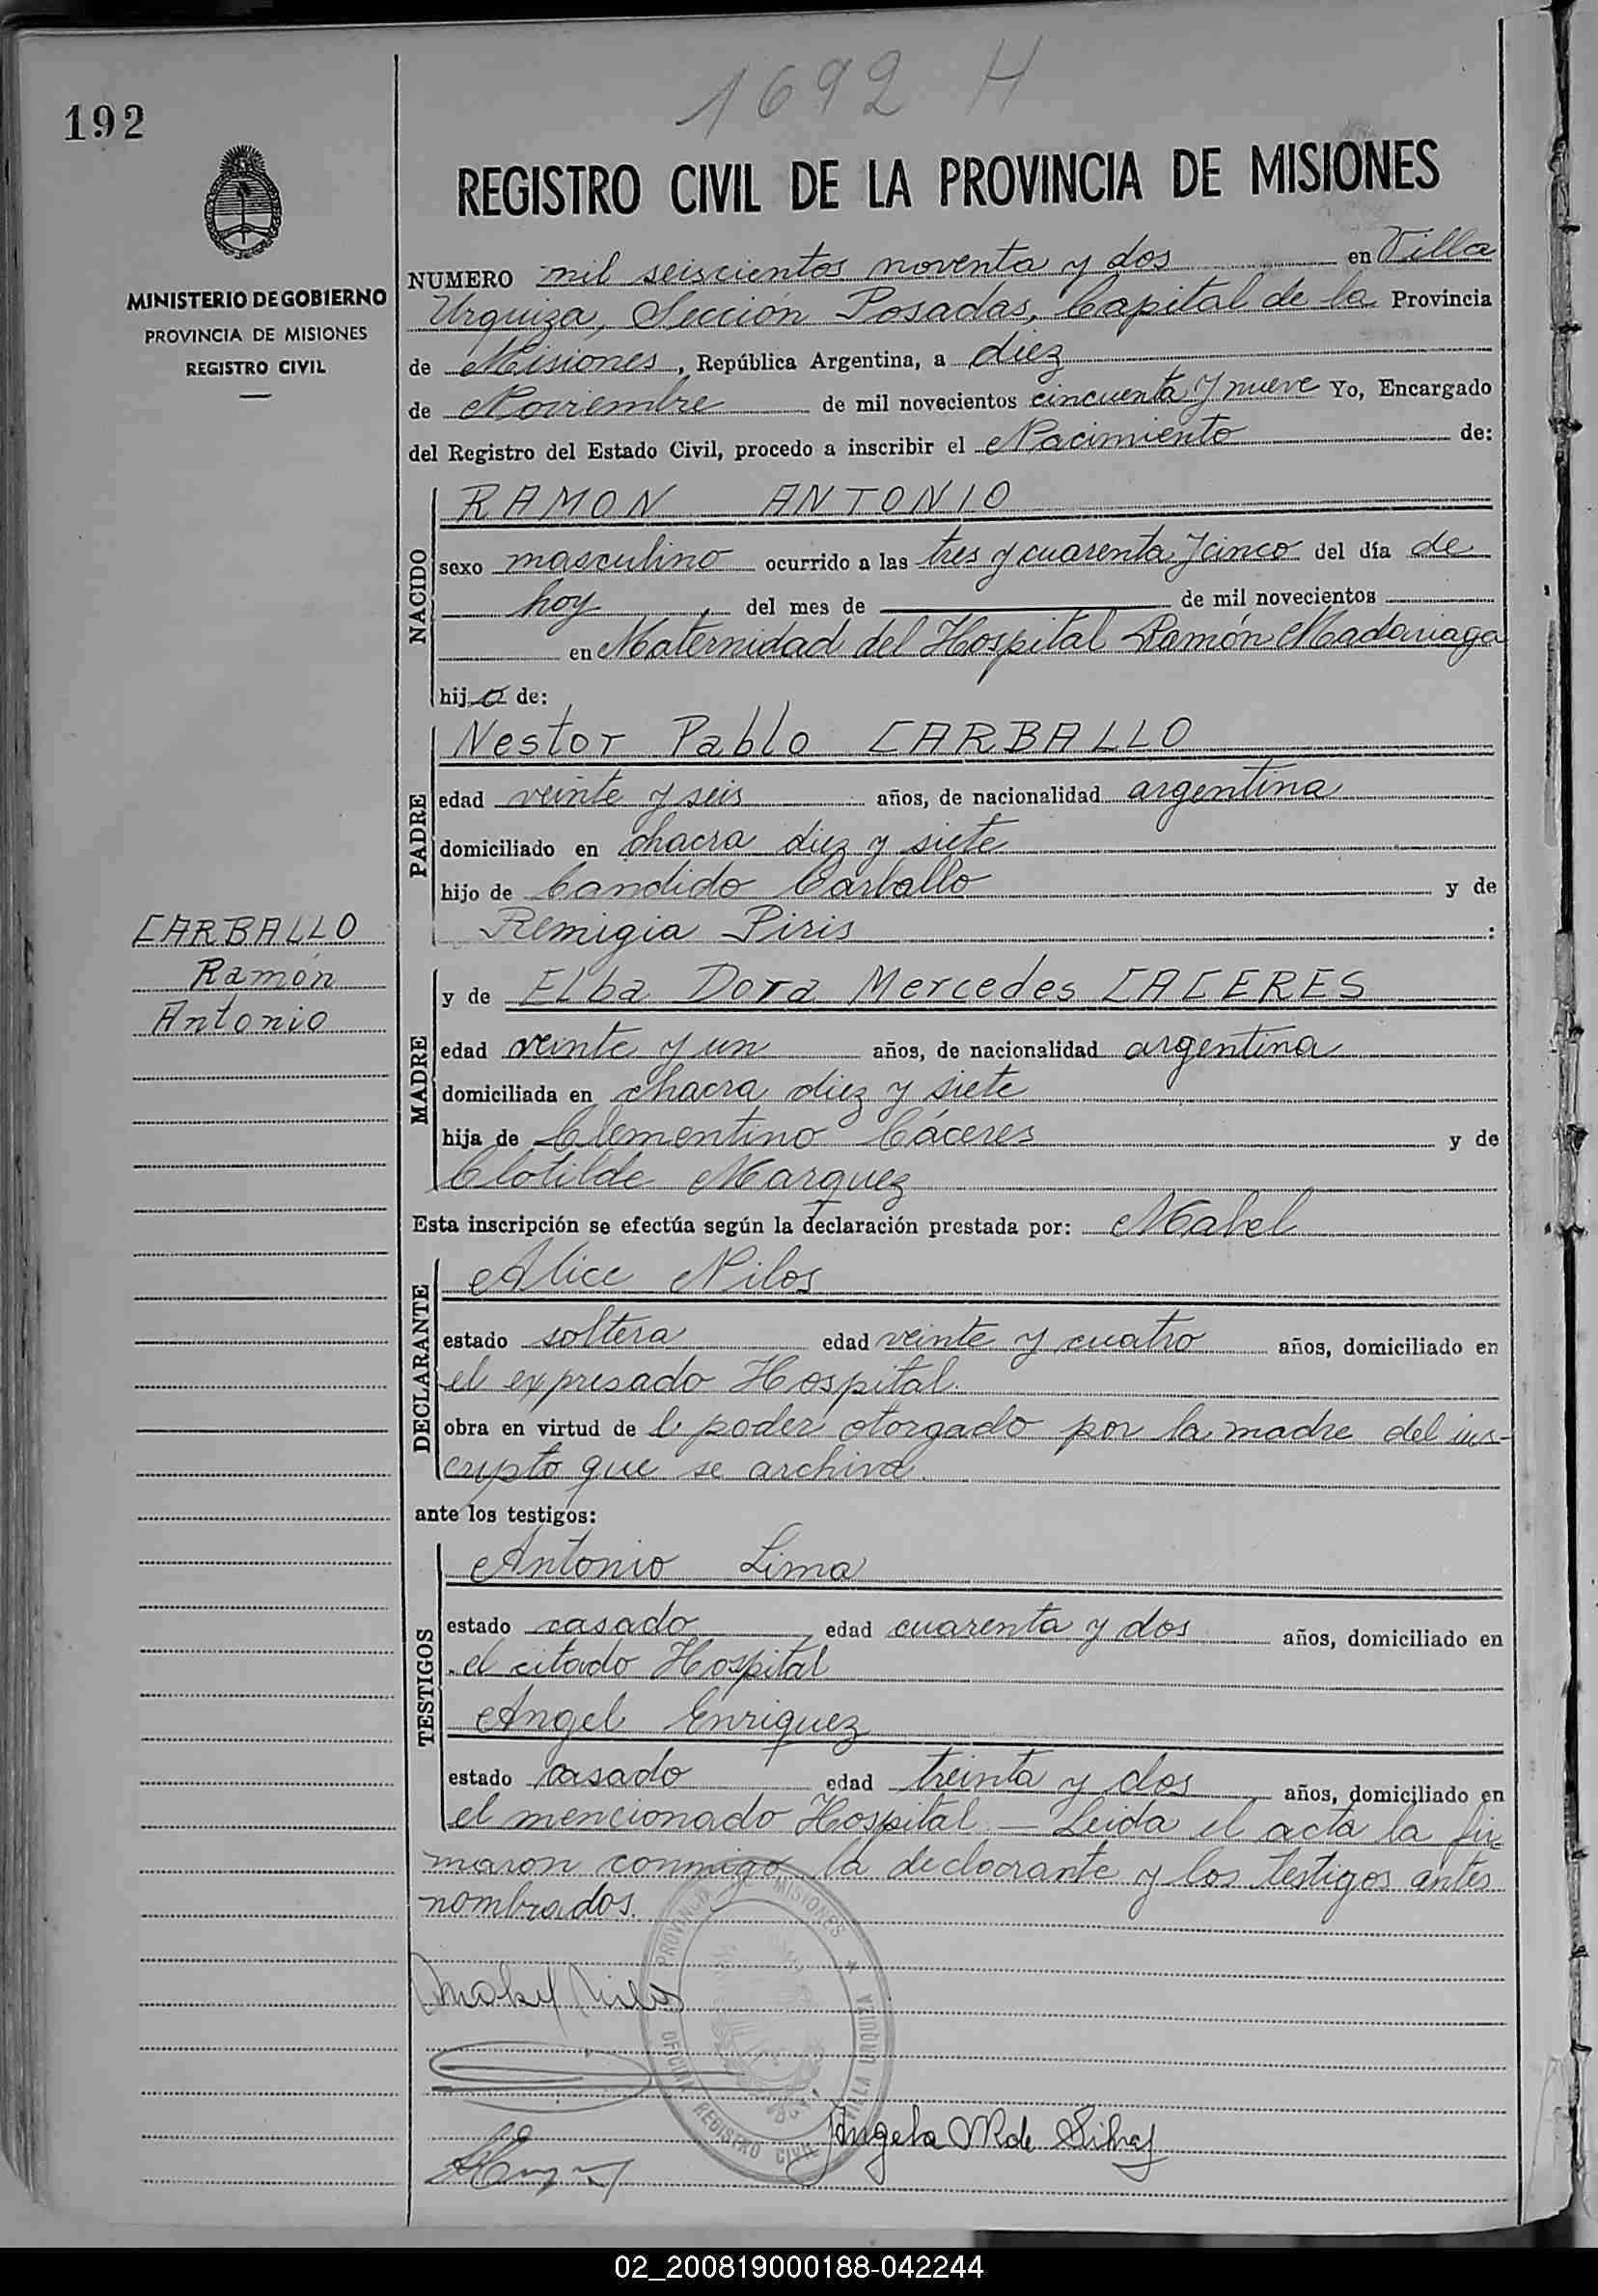 1692 H
192
REGISTRO CIVIL DE LA PROVINCIA DE MISIONES
MINISTERIO DE GOBIERNO
PROVINCIA DE MISIONES
REGISTRO CIVIL
NUMERO mil seiscientos noventa y dos en Villa
Urquiza, Sección Posadas, Capital de la Provincia
de Misiones, República Argentina, a diez
de Noviembre de mil novecientos cincuenta y nueve Yo, Encargado
del Registro del Estado Civil, procedo a inscribir el Nacimiento de:
NACIDO
RAMON ANTONIO
sexo masculino ocurrido a las tres y cuarenta y cinco del día de
hoy, del mes de de mil novecientos
en Maternidad del Hospital Ramón Madariaga
hijo de:
PADRE
Nestor Pablo CARBALLO
edad veinte y seis años, de nacionalidad argentina
domiciliado en chacra diez y siete
hijo de Candido Carballo y de
Remigia Piris :
CARBALLO
Ramón
Antonio
MADRE
y de Elba Dora Mercedes CACERES
edad veinte y un años, de nacionalidad argentina
domiciliada en chacra diez y siete
hija de Clementino Cáceres y de
Clotilde Marquez
Esta inscripción se efectúa según la declaración prestada por: Mabel
DECLARANTE
Alice Nilos
estado soltera edad veinte y cuatro años, domiciliado en
el expresado Hospital.
obra en virtud de poder otorgado por la madre del ins-
cripto que se archiva.
ante los testigos:
TESTIGOS
Antonio Lima
estado casado edad cuarenta y dos años, domiciliado en
el citado Hospital
Angel Enriquez
estado casado edad treinta y dos años, domiciliado en
el mencionado Hospital — Leida el acta la fir-
maron conmigo la declarante y los testigos antes
nombrados.
PROVINCIA DE MISIONES * VILLA URQUIZA
OFICINA REGISTRO CIVIL
Mabel Nilos
Angela R de Silva
02_200819000188-042244